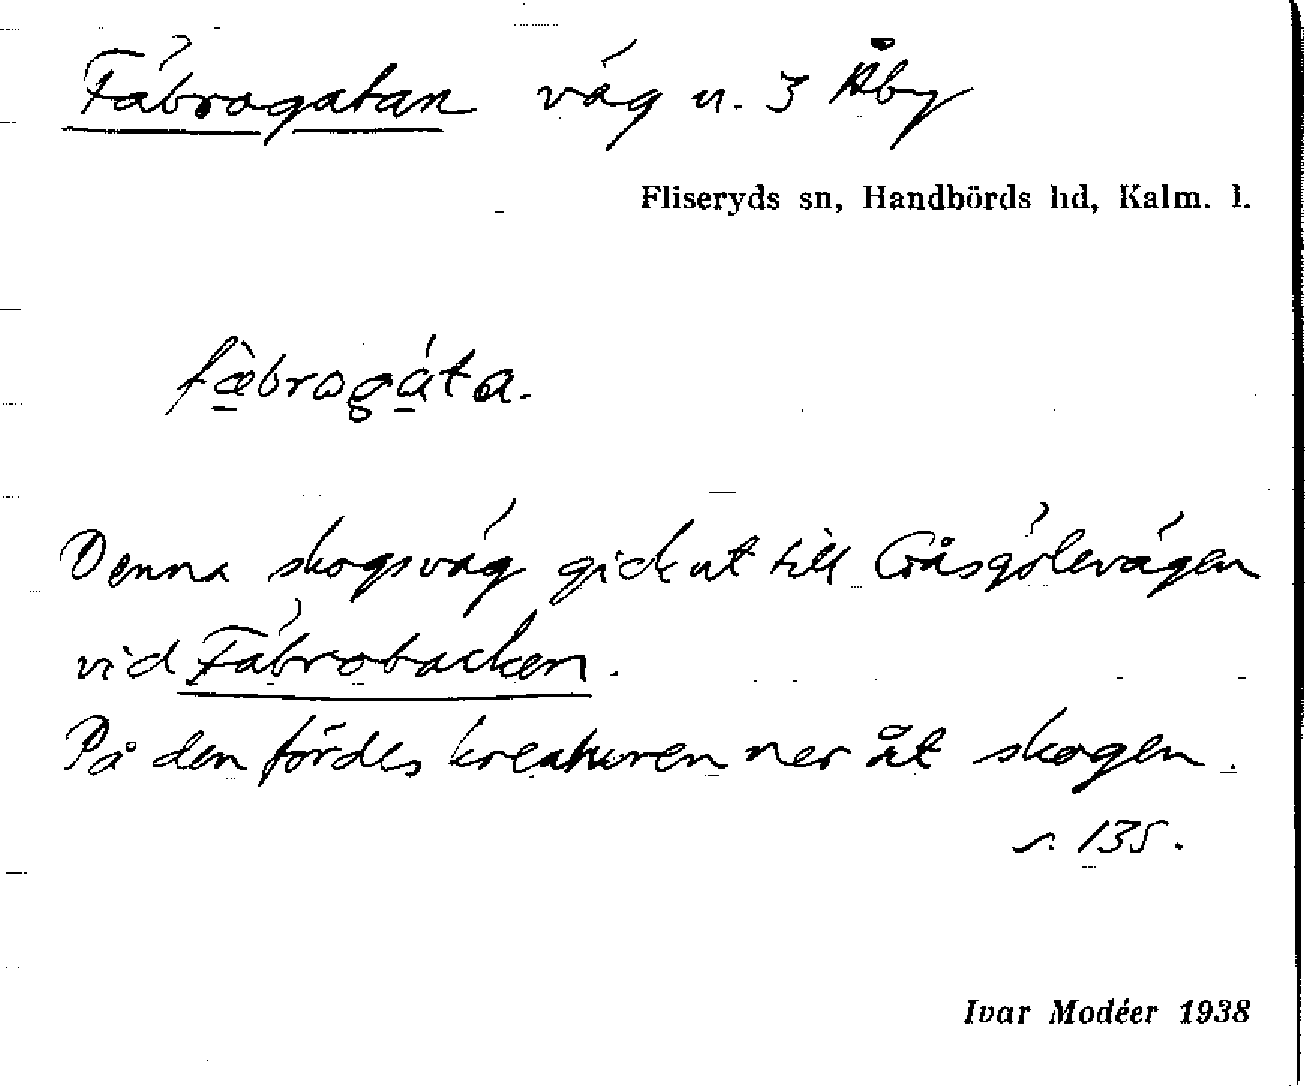 Fäbrogatan väg u. 3 Åby
Fliseryds sn, Handbörds hd, Kalm. l.
fæ̀brogáta.
Denna skogsväg gick ut till Gåsgölevägen
vid Fäbrobacken.
På den fördes kreaturen ner åt skogen.
s. 135.
Ivar Modéer 1938